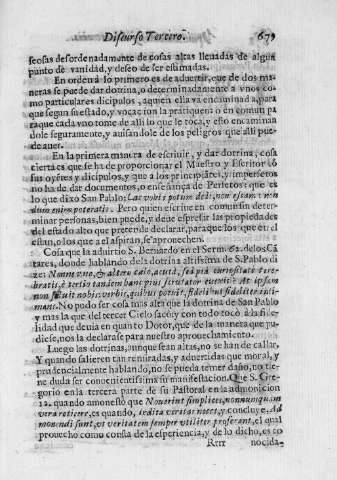 Discurso Tercero. 679
seosas desordenadamente de cosas altas lleuadas de algun
punto de vanidad, y deseo de ser estimadas.
En orden à lo primero es de aduertir, que de dos ma-
neras se puede dar dotrina, o determinadamente a vnos co-
mo particulares dicipulos, a quien ella va encaminada, para
que segun su estado, y vocacion la pratiquen: o en comun pa
ra que cada vno tome de alli lo que le toca, y esto encaminan
dole seguramente, y auisandole de los peligros que alli pue-
de auer.
En la primera manera de escriuir, y dar dotrina, cosa
cierta es que se ha de proporcionar el Maestro y Escritor cõ
sus oyẽtes y dicipulos, y que a los principiãtes, y imperfetos
no ha de dar documentos, o enseñança de Perfetos: que es
lo que dixo San Pablo; Lac vobis potum dedi, non escam: non
dum enim poteratis. Pero quien escriue en comun sin deter
minar personas, bien puede, y deue espresar las propiedades
del estado alto que pretende declarar, para que los que en el
estan, o los que a el aspiran, se aprouechen.
Cosa que la aduirtio S. Bernardo en el Serm. 62. de los Cã
tares, donde hablando de la dotrina altissima de S. Pablo di
ze: Nonne vno, & altero cælo, acuta, sed pia curiositate tere-
bratis, è tertio tandem hanc pius scrutator euexit? At ipsam
non siluit nobis, verbis, quibus potuit, fidelibus fideliter inti-
mans. No pudo ser cosa mas alta que la dotrina de San Pablo
y mas la que del tercer Cielo sacò, y con todo tocò à la fide-
lidad que deuia en quanto Dotor, que de la manera que pu-
diese, nos la declarase para nuestro aprouechamiento.
Luego las dotrinas, aunque sean altas, no se han de callar.
Y quando salieren tan remiradas, y aduertidas que moral, y
prudencialmente hablando, no se pueda temer daño, no tie-
ne duda ser conuenientissima su manifestacion. Que S. Gre-
gorio en la tercera parte de su Pastoral en la admonicion
12. quando amonestò que Nouerint simplices, nonnunquam
vera reticere, es quando, indita veritas nocet, y concluye, Ad
monendi sunt, vt veritatem semper vtiliter proferant, el qual
prouecho como consta de la esperiencia, y de lo dicho, es co
Rrrr nocida-